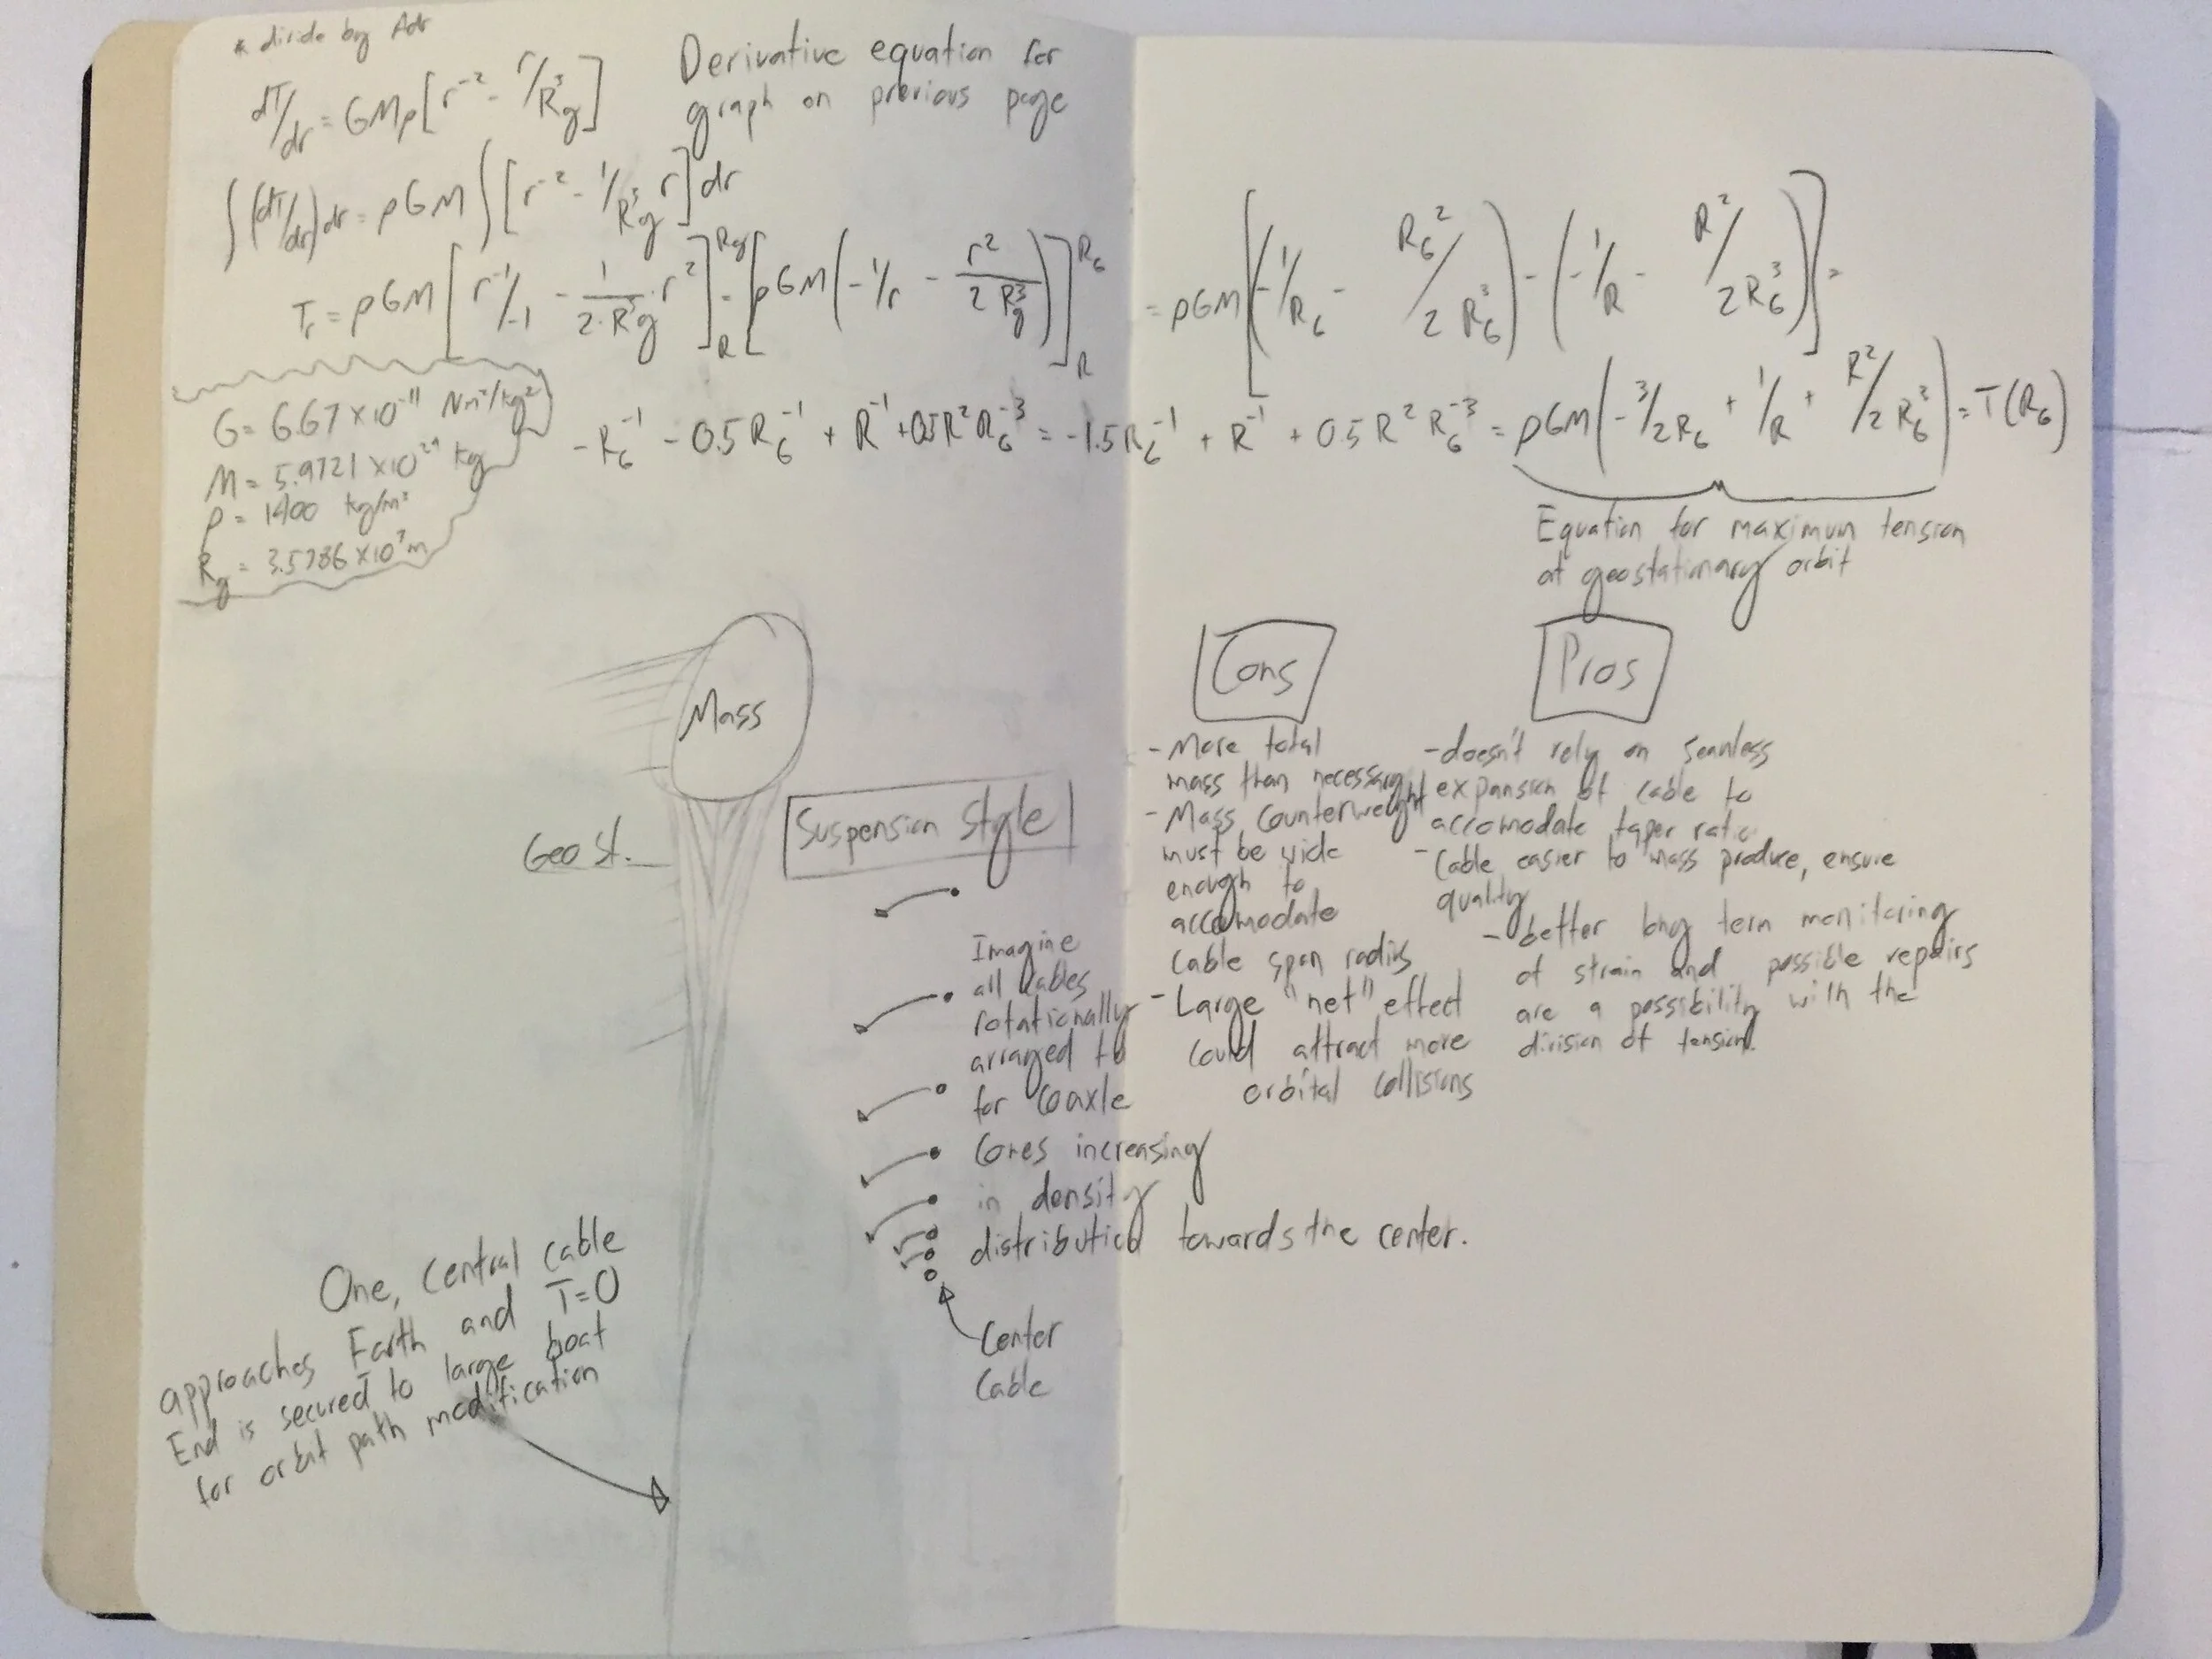 * divide by Adr
dT/dr = GMρ[r⁻² - r/Rg³]
Derivative equation for
graph on previous page
∫(dT/dr)dr = ρGM∫[r⁻² - 1/Rg³ r]dr
Tr = ρGM[r⁻¹/-1 - 1/2·Rg³ · r²]_R^Rg = [ρGM(-1/r - r²/2Rg³)]_R^RG
= ρGM[(-1/RG - RG²/2RG³) - (-1/R - R²/2RG³)] =
-RG⁻¹ - 0.5RG⁻¹ + R⁻¹ + 0.5R²RG⁻³ = -1.5RG⁻¹ + R⁻¹ + 0.5R²RG⁻³ = ρGM(-3/2RG + 1/R + R²/2RG³) = T(RG)
G = 6.67 × 10⁻¹¹ Nm²/kg²
M = 5.9721 × 10²⁴ kg
ρ = 1400 kg/m³
Rg = 3.5786 × 10⁷ m
Equation for maximum tension
at geostationary orbit
Mass
Geo St.
Suspension Style
Imagine
all cables
rotationally
arranged to
for coaxle
Cones increasing
in density
distribution towards the center.
Center
Cable
One, central cable
approaches Earth and T=0
End is secured to large boat
for orbit path modification
Cons
- More total
mass than necessary
- Mass counterweight
must be wide
enough to
accomodate
cable span radius
- Large "net" effect
could attract more
orbital collisions
Pros
- doesn't rely on seamless
expansion of cable to
accomodate taper ratio
- Cable easier to mass produce, ensure
quality
- better long term monitoring
of strain and possible repairs
are a possibility with the
division of tension.